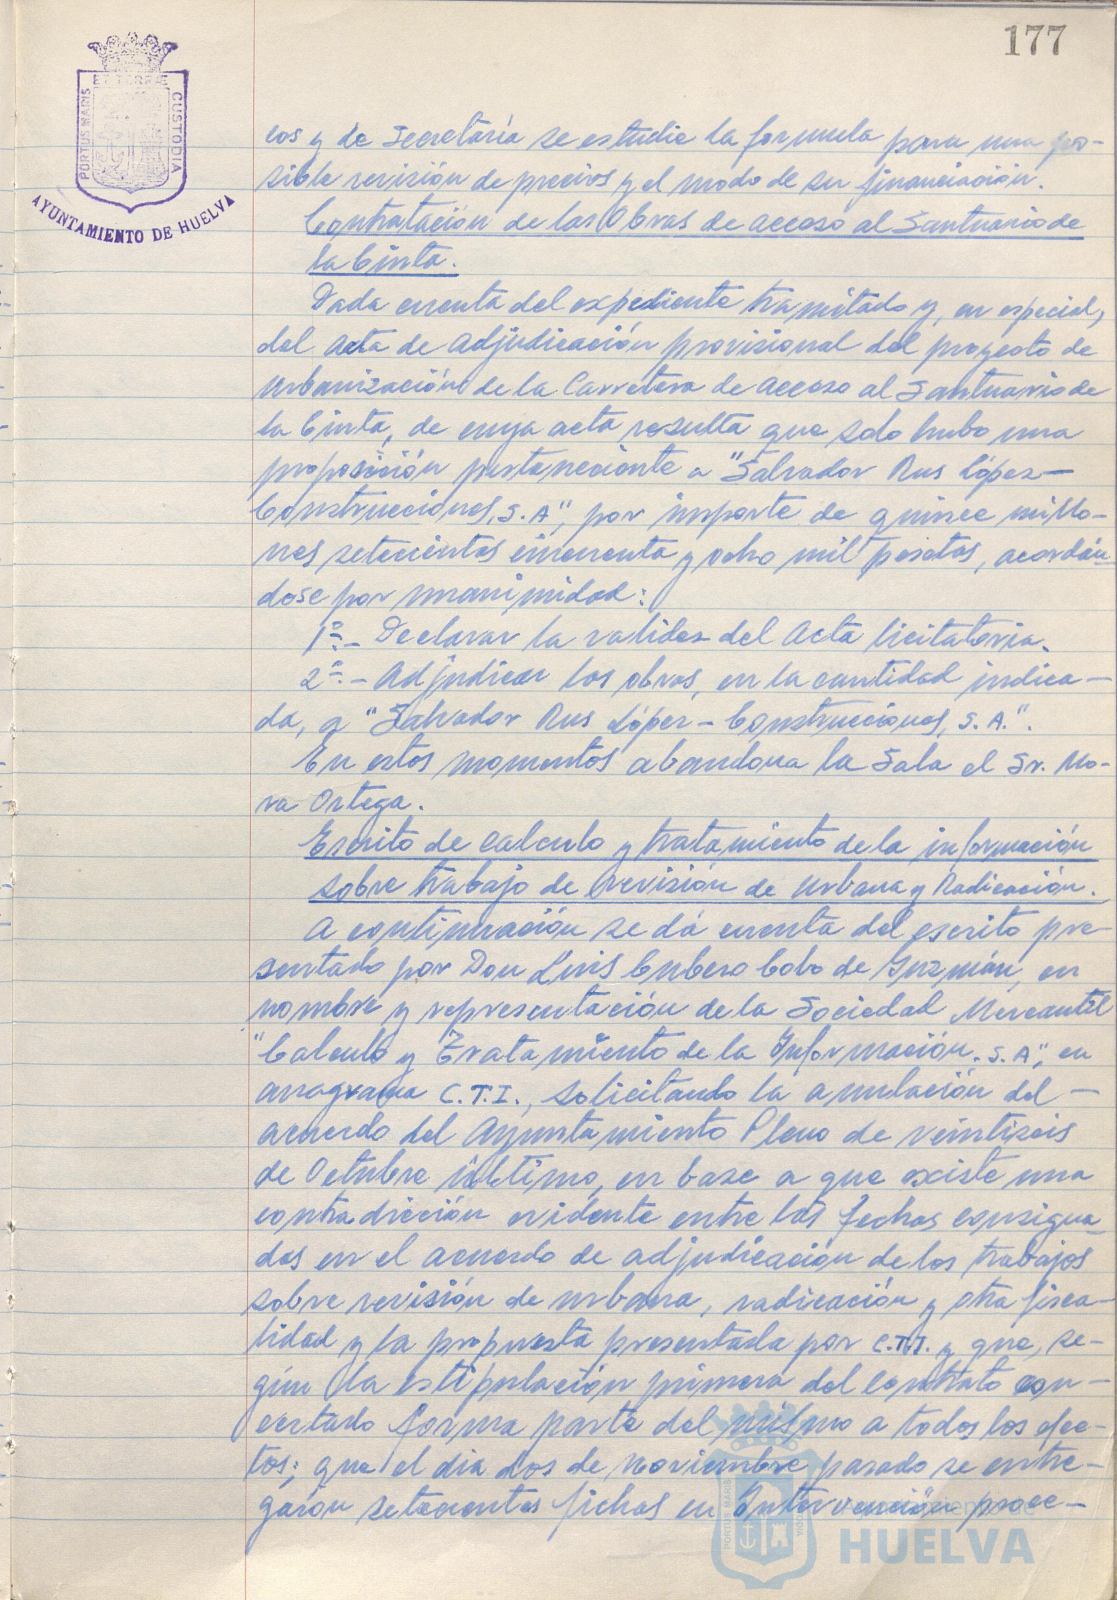 177
PORTUS MARIS
CUSTODIA
AYUNTAMIENTO DE HUELVA
cos y de Secretaría se estudie la formula para una po-
sible revisión de precios y el modo de su financiación.
Contratación de las Obras de acceso al Santuario de
la Cinta.
Dada cuenta del expediente tramitado y, en especial,
del Acta de Adjudicación provisional del proyecto de
Urbanización de la Carretera de acceso al Santuario de
la Cinta, de cuya acta resulta que solo hubo una
proposición perteneciente a "Salvador Rus López-
Construcciones, S.A", por importe de quince millo-
nes setecientas cincuenta y ocho mil pesetas, acordán
dose por unanimidad:
1º.- Declarar la validez del Acta licitatoria.
2º.- Adjudicar las obras, en la cantidad indica-
da, a "Salvador Rus López - Construcciones, S.A.".
En estos momentos abandona la Sala el Sr. Mo-
ra Ortega.
Escrito de Calculo y tratamiento de la información
sobre trabajo de revisión de Urbana y Radicación.
A continuación se dá cuenta del escrito pre-
sentado por Don Luis Cubero Cobo de Guzmán, en
nombre y representación de la Sociedad Mercantil
"Calculo y Tratamiento de la Información, S.A", en
anagrama C.T.I., solicitando la anulación del -
acuerdo del Ayuntamiento Pleno de veintiseis
de Octubre último, en base a que existe una
contradicción evidente entre las fechas consigna
das en el acuerdo de adjudicación de los trabajos
sobre revisión de urbana, radicación y otra fisca-
lidad y la propuesta presentada por C.T.I. y que, se-
gún la estipulación primera del contrato con-
certado forma parte del mismo a todos los efec-
tos; que el dia dos de Noviembre pasado se entre-
garon setecientas fichas en Intervención proce-
PORTUS MARIS
HUELVA